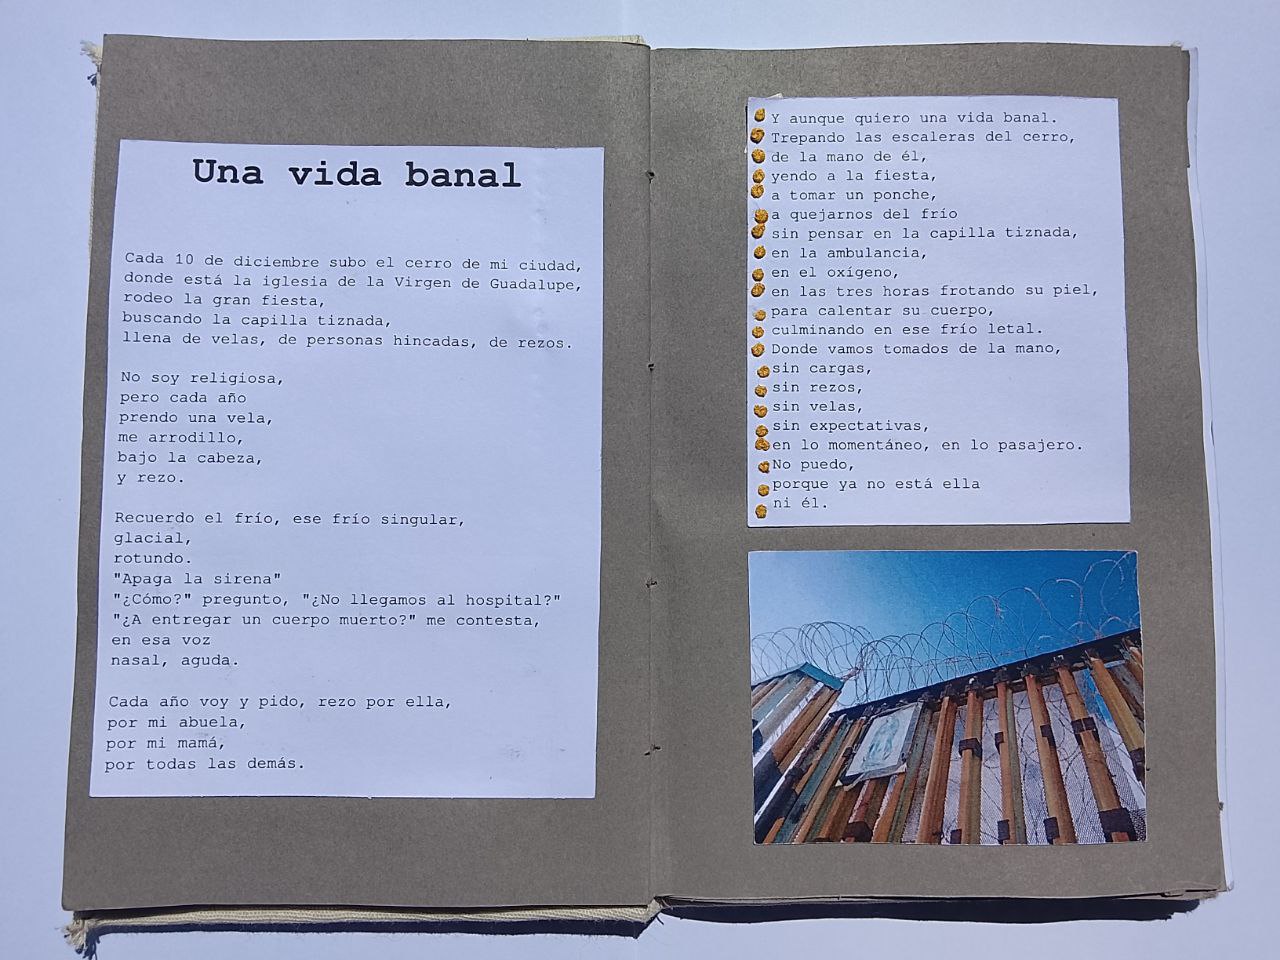 Una vida banal
Cada 10 de diciembre subo el cerro de mi ciudad,
donde está la iglesia de la Virgen de Guadalupe,
rodeo la gran fiesta,
buscando la capilla tiznada,
llena de velas, de personas hincadas, de rezos.
No soy religiosa,
pero cada año
prendo una vela,
me arrodillo,
bajo la cabeza,
y rezo.
Recuerdo el frío, ese frío singular,
glacial,
rotundo.
"Apaga la sirena"
"¿Cómo?" pregunto, "¿No llegamos al hospital?"
"¿A entregar un cuerpo muerto?" me contesta,
en esa voz
nasal, aguda.
Cada año voy y pido, rezo por ella,
por mi abuela,
por mi mamá,
por todas las demás.
Y aunque quiero una vida banal.
Trepando las escaleras del cerro,
de la mano de él,
yendo a la fiesta,
a tomar un ponche,
a quejarnos del frío
sin pensar en la capilla tiznada,
en la ambulancia,
en el oxígeno,
en las tres horas frotando su piel,
para calentar su cuerpo,
culminando en ese frío letal.
Donde vamos tomados de la mano,
sin cargas,
sin rezos,
sin velas,
sin expectativas,
en lo momentáneo, en lo pasajero.
No puedo,
porque ya no está ella
ni él.